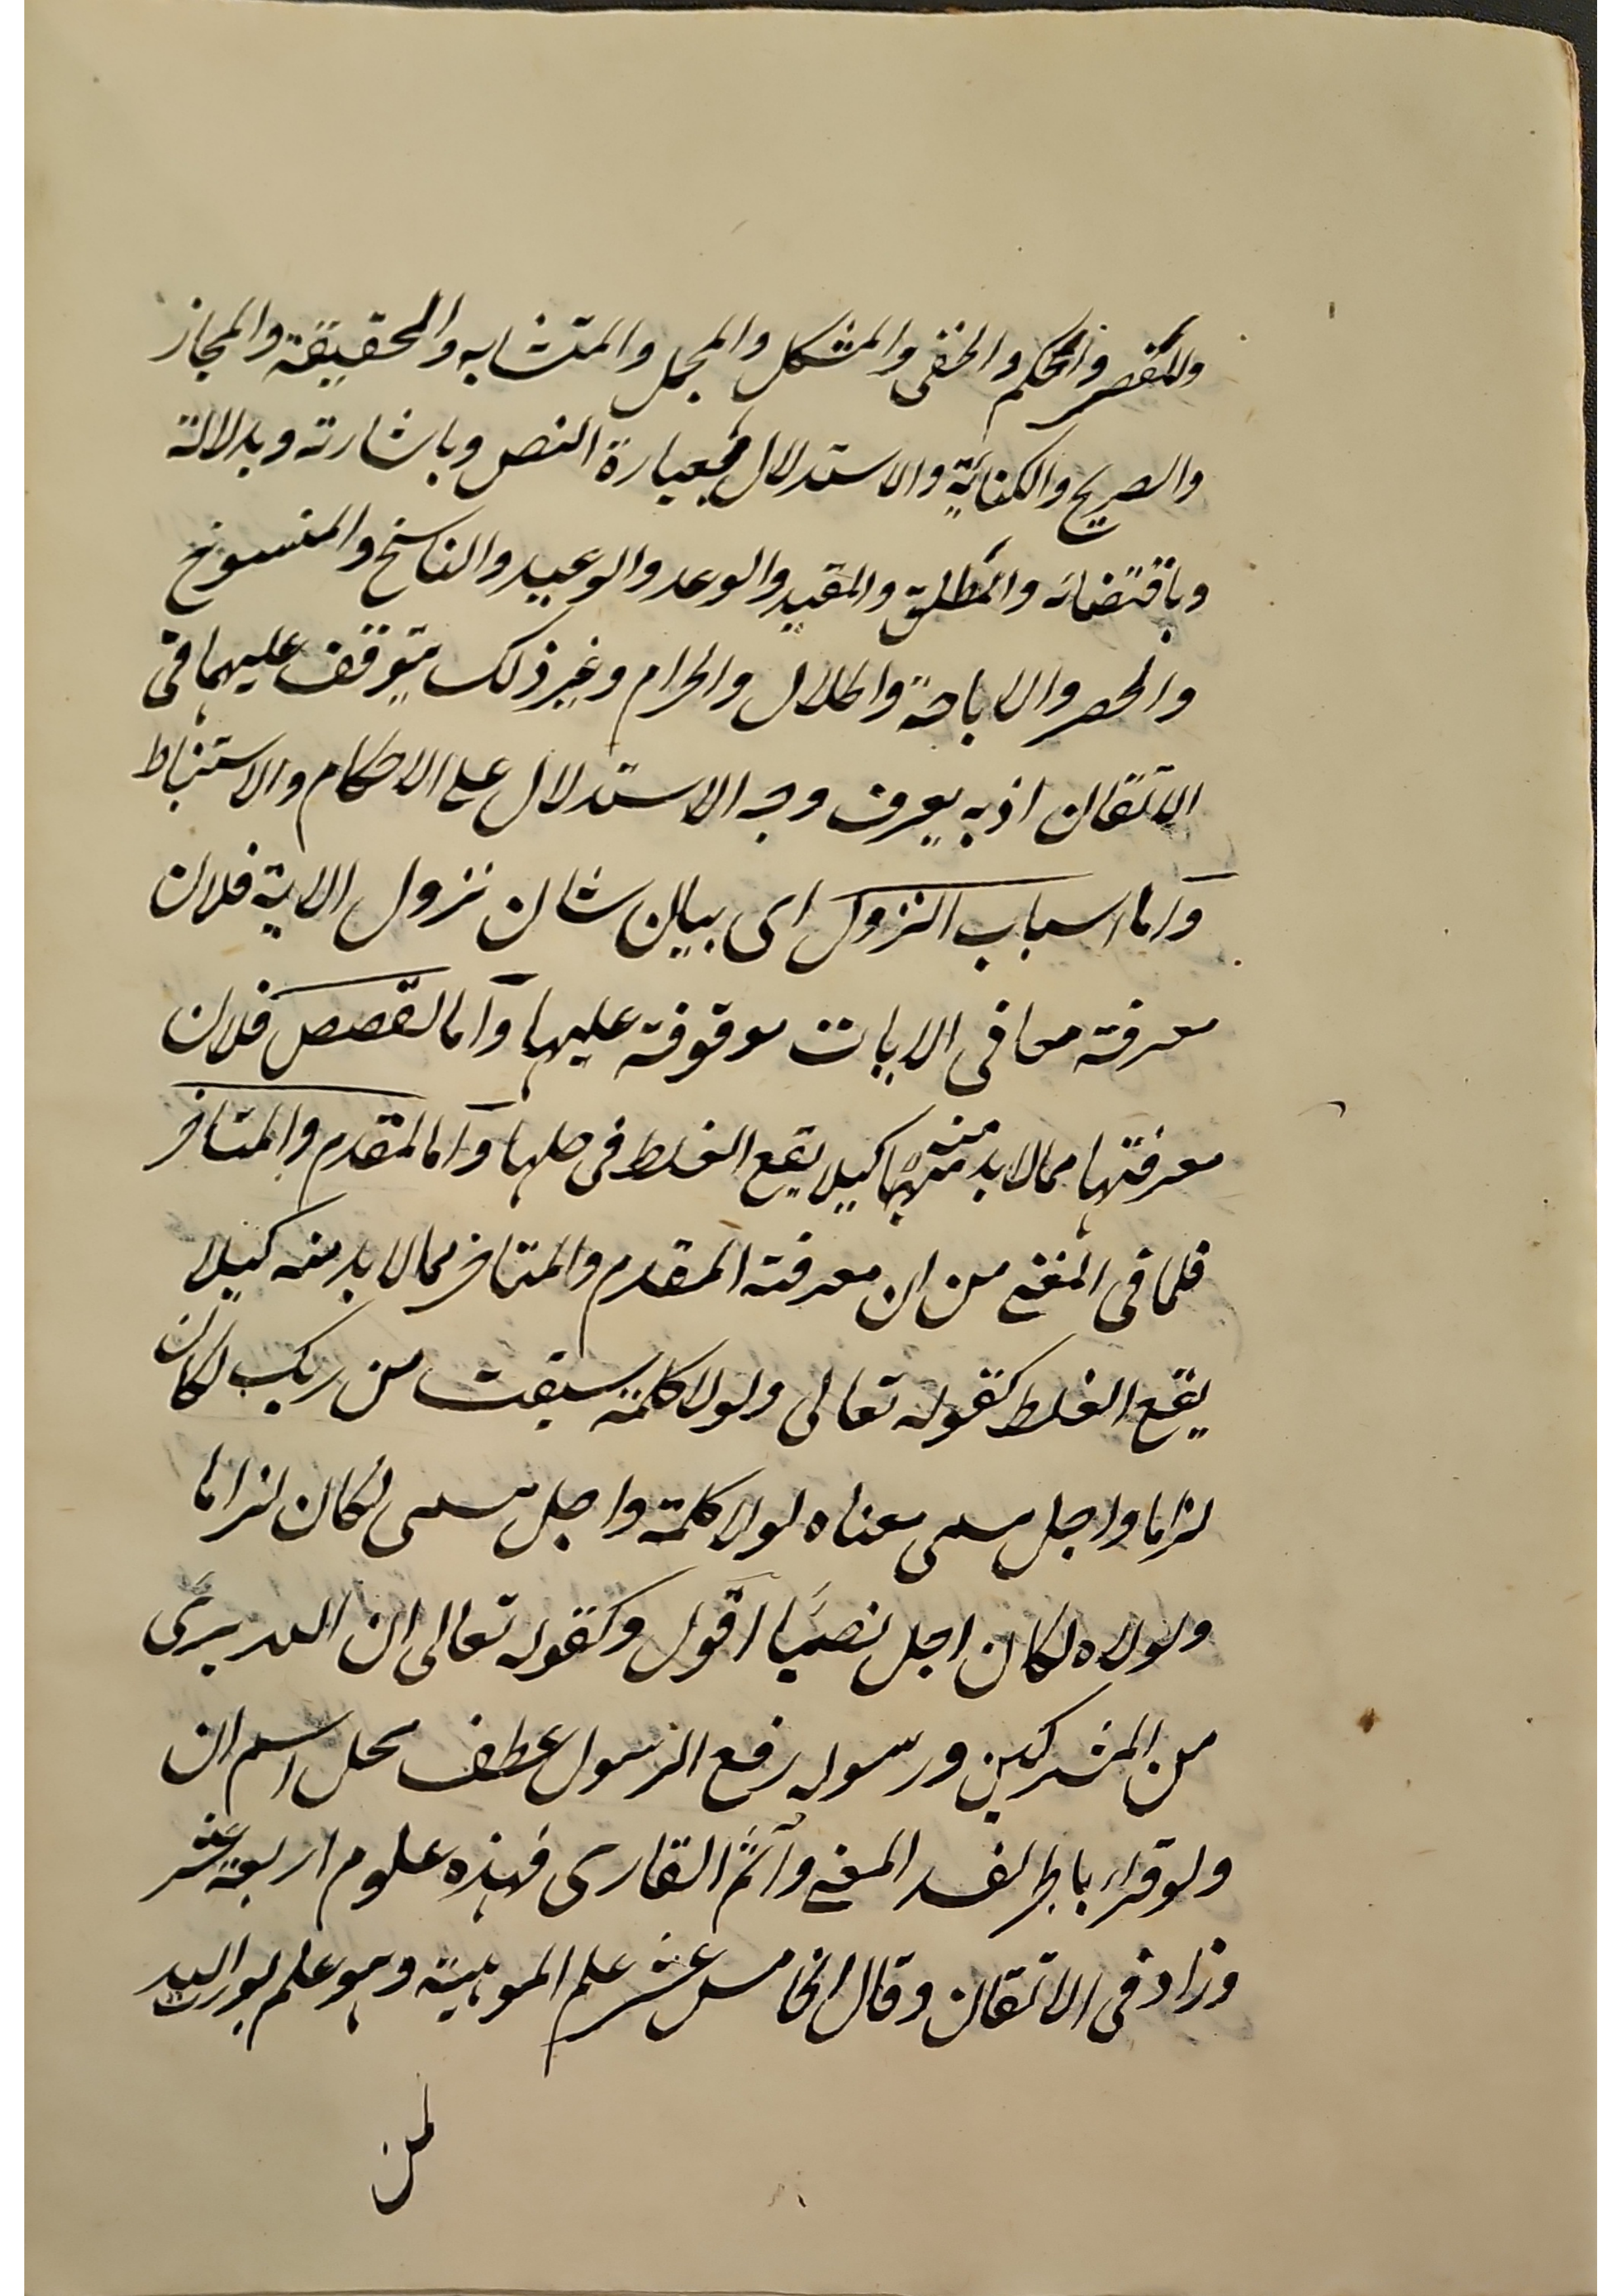 والمفسر والمحكم والخفى والمشكل والمجمل والمتشابه والحقيقة والمجاز
والصريح والكناية والاستدلال بعبارة النص وباشارته وبدلالة
وباقتضائه والمطلق والمقيد والوعد والوعيد والناسخ والمنسوخ
والحصر والاباحة والحلال والحرام وغير ذلك يتوقف عليها فى
الاتقان اذ به يعرف وجه الاستدلال على الاحكام والاستنباط
واما اسباب النزول اى بيان شان نزول الاية فلان
معرفة معانى الايات موقوفة عليها واما القصص فلان
معرفتها مما لا بد منه كيلا يقع الغلط فى حلها واما المقدم والمتاخر
فلما فى المغنى من ان معرفة المقدم والمتاخر مما لا بد منه كيلا
يقع الغلط كقوله تعالى ولولا كلمة سبقت من ربك لكان
لزاما واجل مسمى معناه لولا كلمة واجل مسمى لكان لزاما
ولولاه لكان اجل نصبا اقول وكقوله تعالى ان الله برى
من المشركين ورسوله رفع الرسول عطف محل اسم ان
ولو قراء بالجر لفسد المعنى واثم القارى فهذه علوم اربعة عشر
وزاد فى الاتقان وقال الخامس عشر علم الموهبة وهو علم يورثه الله
لمن